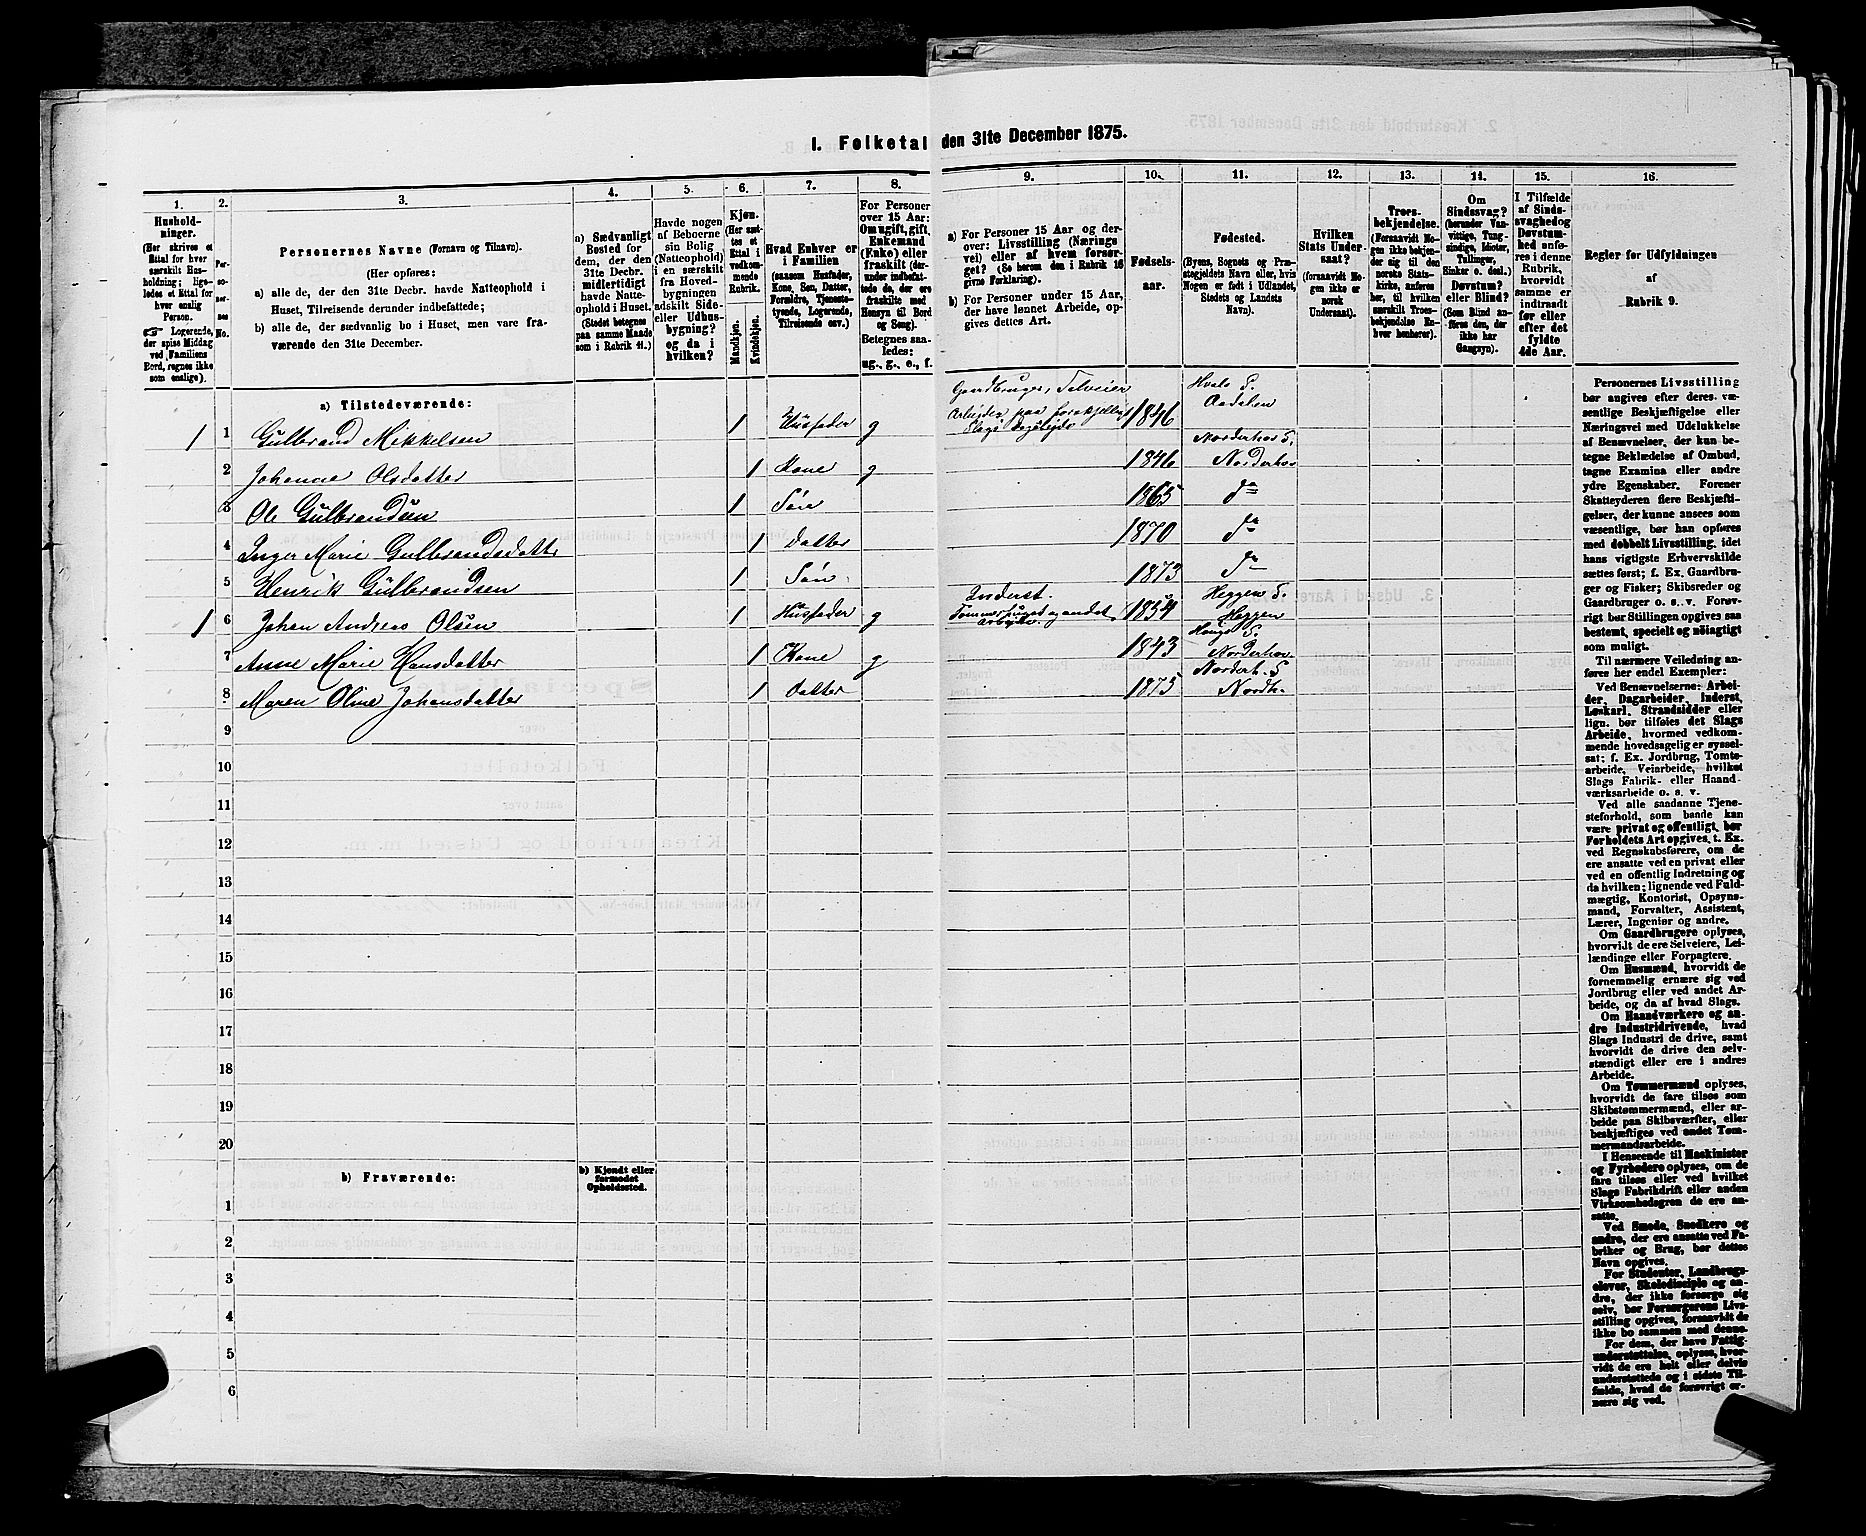 1. Folketal den 31te December 1875.
1. 2. 3. 4. 5. 6. 7. 8. 9. 10. 11. 12. 13. 14. 15. 16.
Hushold-
ninger.
(Her skrives et
Ettal for hver
særskilt Hus-
holdning; lige-
ledes et Ettal for
hver enslig
Person.
☞ Logerende,
der spise Middag
ved Familiens
Bord, regnes ikke
som enslige).
Per-
so-
ner-
nes
No.
Personernes Navne (Fornavn og Tilnavn).
(Her opføres:
a) alle de, der den 31te Decbr. havde Natteophold i
Huset, Tilreisende derunder indbefattede;
b) alle de, der sædvanlig bo i Huset, men vare fra-
værende den 31te December.
a) Sædvanligt
Bosted for
dem, der den
31te Decbr.
midlertidigt
havde Natte-
ophold i Huset.
(Stedet betegnes
paa samme Maade
som i Rubrik 11.)
Havde nogen
af Beboerne
sin Bolig
(Natteophold)
i en særskilt
fra Hoved-
bygningen
adskilt Side-
eller Udhus-
bygning?
og da i
hvilken?
Kjøn.
(Her sæt-
tes et
Ettal i
vedkom-
mende
Rubrik.
Mandkjøn.
Kvindekjøn.
Hvad Enhver er
i Familien
(saasom Husfader,
Kone, Søn, Datter,
Forældre, Tjeneste-
tyende, Logerende,
Tilreisende osv.)
For Personer
over 15 Aar:
Om ugift, gift,
Enkemand
(Enke) eller
fraskilt (der-
under indbefat-
tede de, der ere
fraskilte med
Hensyn til Bord
og Seng).
Betegnes saa-
ledes:
ug., g., e., f.
a) For Personer 15 Aar og der-
over: Livsstilling (Nærings-
vei) eller af hvem forsør-
get? (Se herom den i Rubrik 16
givne Forklaring).
b) For Personer under 15 Aar,
der have lønnet Arbeide, op-
gives dettes Art.
Fødsels-
aar.
Fødested.
(Byens, Sognets og Præ-
stegjeldets Navn eller, hvis
Nogen er født i Udlandet,
Stedets og Landets
Navn).
Hvilken
Stats Under-
saat?
(forsaavidt No-
gen ikke er
norsk
Undersaat).
Troes-
bekjendelse.
(Forsaavidt No-
gen ikke bekjen-
der sig til den
norske Stats-
kirke, anføres
her, til hvilken
særskilt Troes-
bekjendelse En-
hver henhører).
Om
Sindssvag?
(herunder Van-
vittige, Tung-
sindige, Idioter,
Tullinger,
Sinker o. desl.)
Døvstum?
eller Blind?
(Som Blind an-
føres den, der
ikke har
Gangsyn).
I Tilfælde
af Sinds-
svaghed og
Døvstum-
hed anfø-
res i denne
Rubrik,
hvorvidt
samme er
indtraadt
før eller
efter det
fyldte
4de Aar.
Regler for Udfyldningen
af
Rubrik 9.
a) Tilstedeværende:
1 1 Gulbrand Mikkelsen 1 Husfader g Gaardbruger, Selveier Arbeider paa forskjelligt Slags 1846 Hvals S. Aadalen
2 Johanne Olsdatter 1 Kone g 1846 Norderhov S. Norderhov
3 Ole Gulbrandsen 1 Søn 1865 do
4 Inger Marie Gulbrandsdatt 1 Datter 1870 do
5 Henrik Gulbrandsen 1 Søn 1873 do
1 6 Johan Andreas Olsen 1 Husfader g Inderst. Tømmerhugst og andet arbeide 1854 Heggen S. Heggen
7 Anne Marie Hansdatter 1 Kone g 1843 Norderhov
8 Maren Oline Johansdatter 1 Datter 1875 Norderh. S. Nordh.
9
10
11
12
13
14
15
16
17
18
19
20
b) Fraværende:
b) Kjendt eller
formodet
Opholdssted.
1
2
3
4
5
6
Personernes Livsstilling
bør angives efter deres væ-
sentlige Beskjæftigelse eller
Næringsvei med Udelukkelse
af Benævnelser, der kun be-
tegne Beklædelse af Ombud,
tagne Examina eller andre
ydre Egenskaber. Forener
Skatteyderen flere Beskjæfti-
gelser, der kunne ansees som
væsentlige, bør han opføres
med dobbelt Livsstilling, idet
hans vigtigste Erhvervskilde
sættes først; f. Ex. Gaardbru-
ger og Fisker; Skibsreder og
Gaardbruger o. s. v. Forøv-
rigt bør Stillingen opgives saa
bestemt, specielt og nøiagtigt
som muligt.
Til nærmere Veiledning an-
føres her endel Exempler:
Ved Benævnelserne: Arbei-
der, Dagarbeider, Inderst,
Løskarl, Strandsidder eller
lign. bør tilføies det Slags
Arbeide, hvormed vedkom-
mende hovedsagelig er syssel-
sat; f. Ex. Jordbrug, Tomte-
arbeide, Veiarbeide, hvilket
Slags Fabrik- eller Haand-
værksarbeide o. s. v.
Ved alle saadanne Tjene-
steforhold, som baade kan
være privat og offentligt, bør
Forholdets Art opgives, t. Ex.
ved Regnskabsførere, om de
ere ansatte ved en privat eller
ved en offentlig Indretning og
da hvilken; lignende ved Fuld-
mægtig, Kontorist, Opsyns-
mand, Forvalter, Assistent,
Lærer, Ingeniør og andre.
Om Gaardbrugere oplyses,
hvorvidt de ere Selveiere, Lei-
lændinge eller Forpagtere.
Om Husmænd, hvorvidt de
fornemmelig ernære sig ved
Jordbrug eller ved andet Ar-
beide, og da af hvad Slags.
Om Haandværkere og an-
dre Industridrivende, hvad
Slags Industri de drive, samt
hvorvidt de drive den selv-
stændigt eller ere i andres
Arbeide.
Om Tømmermænd oplyses,
hvorvidt de fare tilsøs som
Skibstømmermænd, eller ar-
beide paa Skibsværfter, eller
beskjæftiges ved andet Tøm-
mermandsarbeide.
I Henseende til Maskinister
og Fyrbødere oplyses, om de
fare tilsøs eller ved hvilket
Slags Fabrikdrift eller anden
Virksomhedsgren de ere an-
satte.
Ved Smede, Snedkere og
andre, der ere ansatte ved Fa-
briker og Brug, bør dettes
Navn opgives.
For Studenter, Landbrugs-
elever, Skoledisciple og an-
dre, der ikke forsørge sig
selv, bør Forsørgerens Livs-
stilling opgives, forsaavidt de
ikke bo sammen med denne.
For dem, der have Fattig-
understøttelse, oplyses, hvor-
vidt de ere helt eller delvis
understøttede og i sidste Til-
fælde, hvad de forøvrigt er-
nære sig ved.